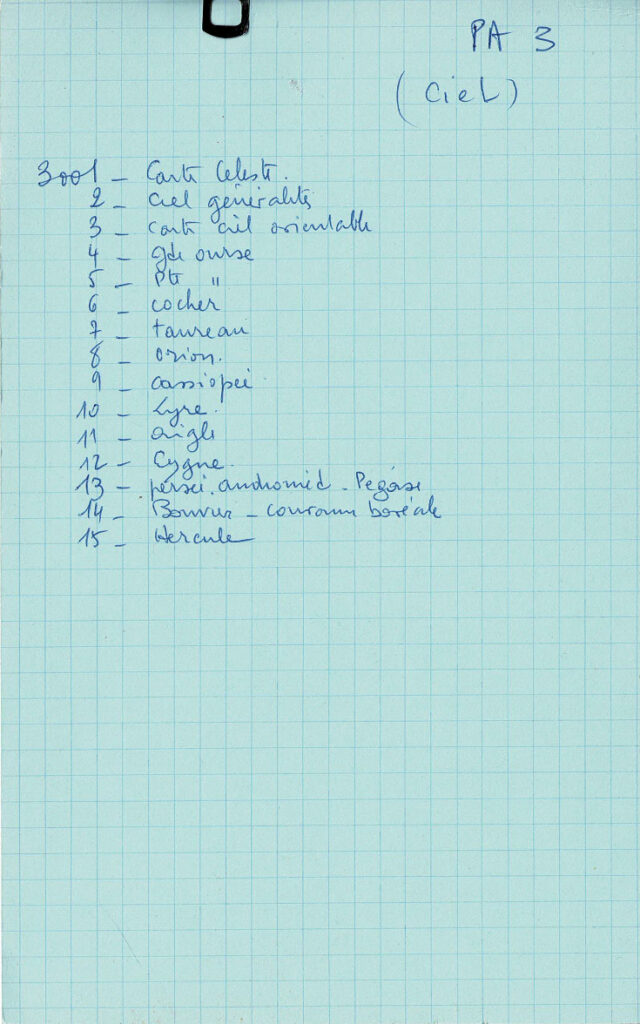 PA 3
(Ciel)
3001 – Carte Celeste.
2 – ciel généralités
3 – carte ciel orientable
4 – gde ourse
5 – Pte "
6 – cocher
7 – taureau
8 – orion.
9 – cassiopée
10 – Lyre.
11 – aigle
12 – Cygne.
13 – persée. andromèd - Pegase
14 – Bouvier – couronne boréale
15 – Hercule